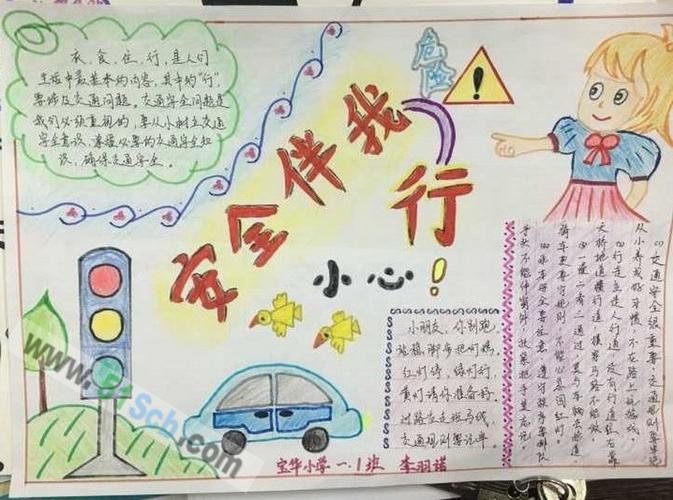 衣、食、住、行,是人们
生活中最基本的内容,其中的"行"
要涉及交通问题。交通安全问题是
我们必须重视的,要从小树立交通
安全意识,掌握必要的交通安全知
识,确保交通安全。
危险
!
安全伴我行
小心!
小朋友,你别跑,
站稳脚步把灯瞧,
红灯停,绿灯行,
黄灯请你准备好,
过路应走斑马线,
交通规则要记牢。
(1)交通安全很重要,交通规则要牢记
从小养成好习惯,不在路上玩游戏。
(2)行走应走人行道,没有行道往右靠
天桥地道横行道,横穿马路不能做
(3)一慢二看三通过,莫与车辆去抢道。
骑车更要守规则,不能心急闯红灯。
(4)乘车安全要注意,遵守秩序要排队
手头不能伸窗外,扶紧把手莫忘记。
宝华小学 一.1班 李羽诺
www.51Sch.com